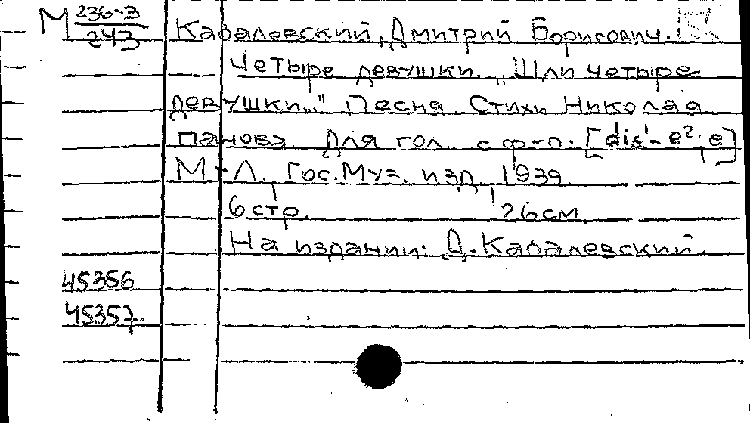 М 236-3
243
Кабалевский, Дмитрий Борисович.
Четыре девушки. "Шли четыре
девушки..." Песня. Стихи Николая
Панова. Для гол. с ф-п. [dis¹-e²; e]
М.-Л., Гос. Муз. изд., 1939
6 стр. 26 см.
На издании: Д. Кабалевский.
45356
45357